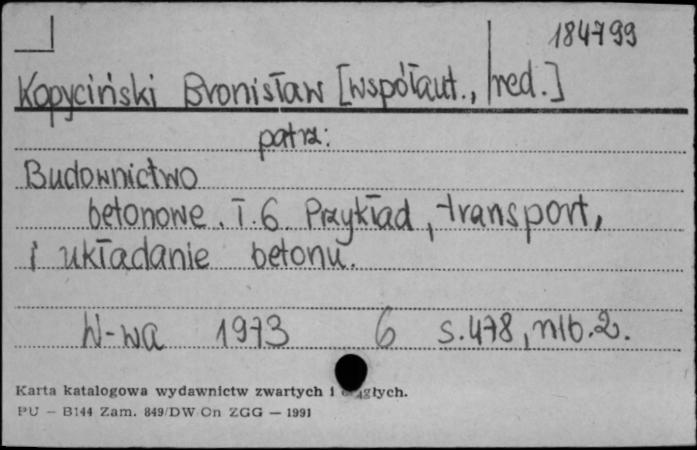 184799
Kopyciński Bronisław [współaut., red.]
patrz:
Budownictwo
betonowe. T.6. Przykład, transport,
i układanie betonu.
W-wa 1973 6 s.478, nlb.2.
Karta katalogowa wydawnictw zwartych i
PU — B144 Zam. 849/DW On ZGG — 1991